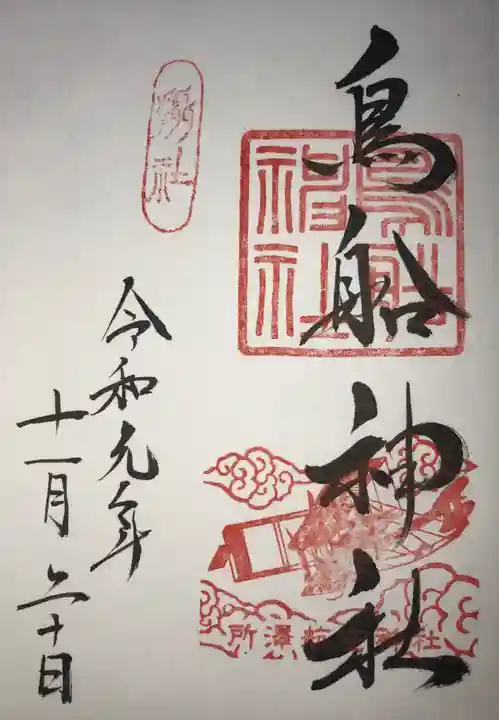 鳥船神社
鳥船
神社
御社
令和元年
十一月二十日